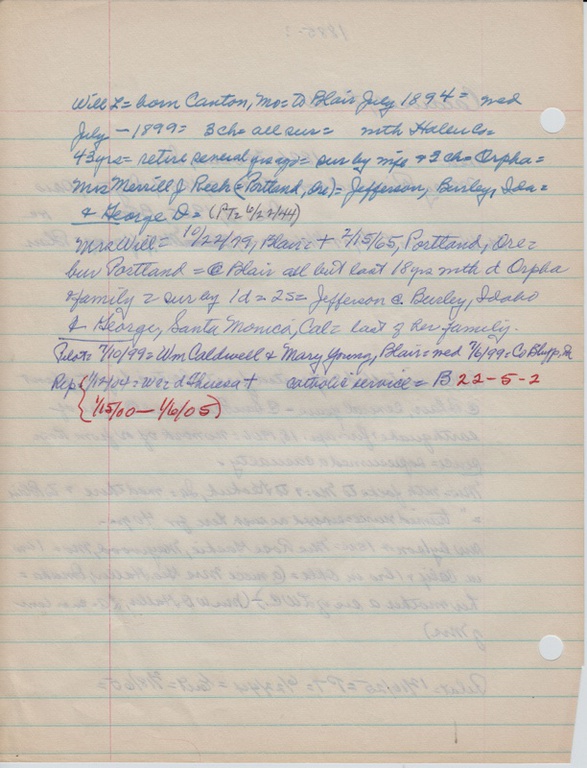 Will L= born Canton, Mo= to Blair July 1894= med
July - 1899= 3 ch= all sur= with Haller Co=
43 yrs= retire several yrs ago= sur by wife + 3 ch= Orpha=
Mrs Merrill J Reeh= (Portland, Ore)= Jefferson, Burley, Ida=
& George D= (PT= 6/22/44)
Mrs Will= 10/22/79, Blair= + 2/15/65, Portland, Ore=
bur Portland= @ Blair all but last 18 yrs with d Orpha
& family= sur by 1d= 2s= Jefferson @ Burley, Idaho
& George, Santa Monica, Cal= last of her family.
Pilot= 7/10/99= Wm Caldwell & Mary Young, Blair= med 7/6/99= Co Bluffs, Ia
Rep 1/12/04= We= d Theresa + catholic service= B 22-5-2
{1/15/00 - 1/6/05)